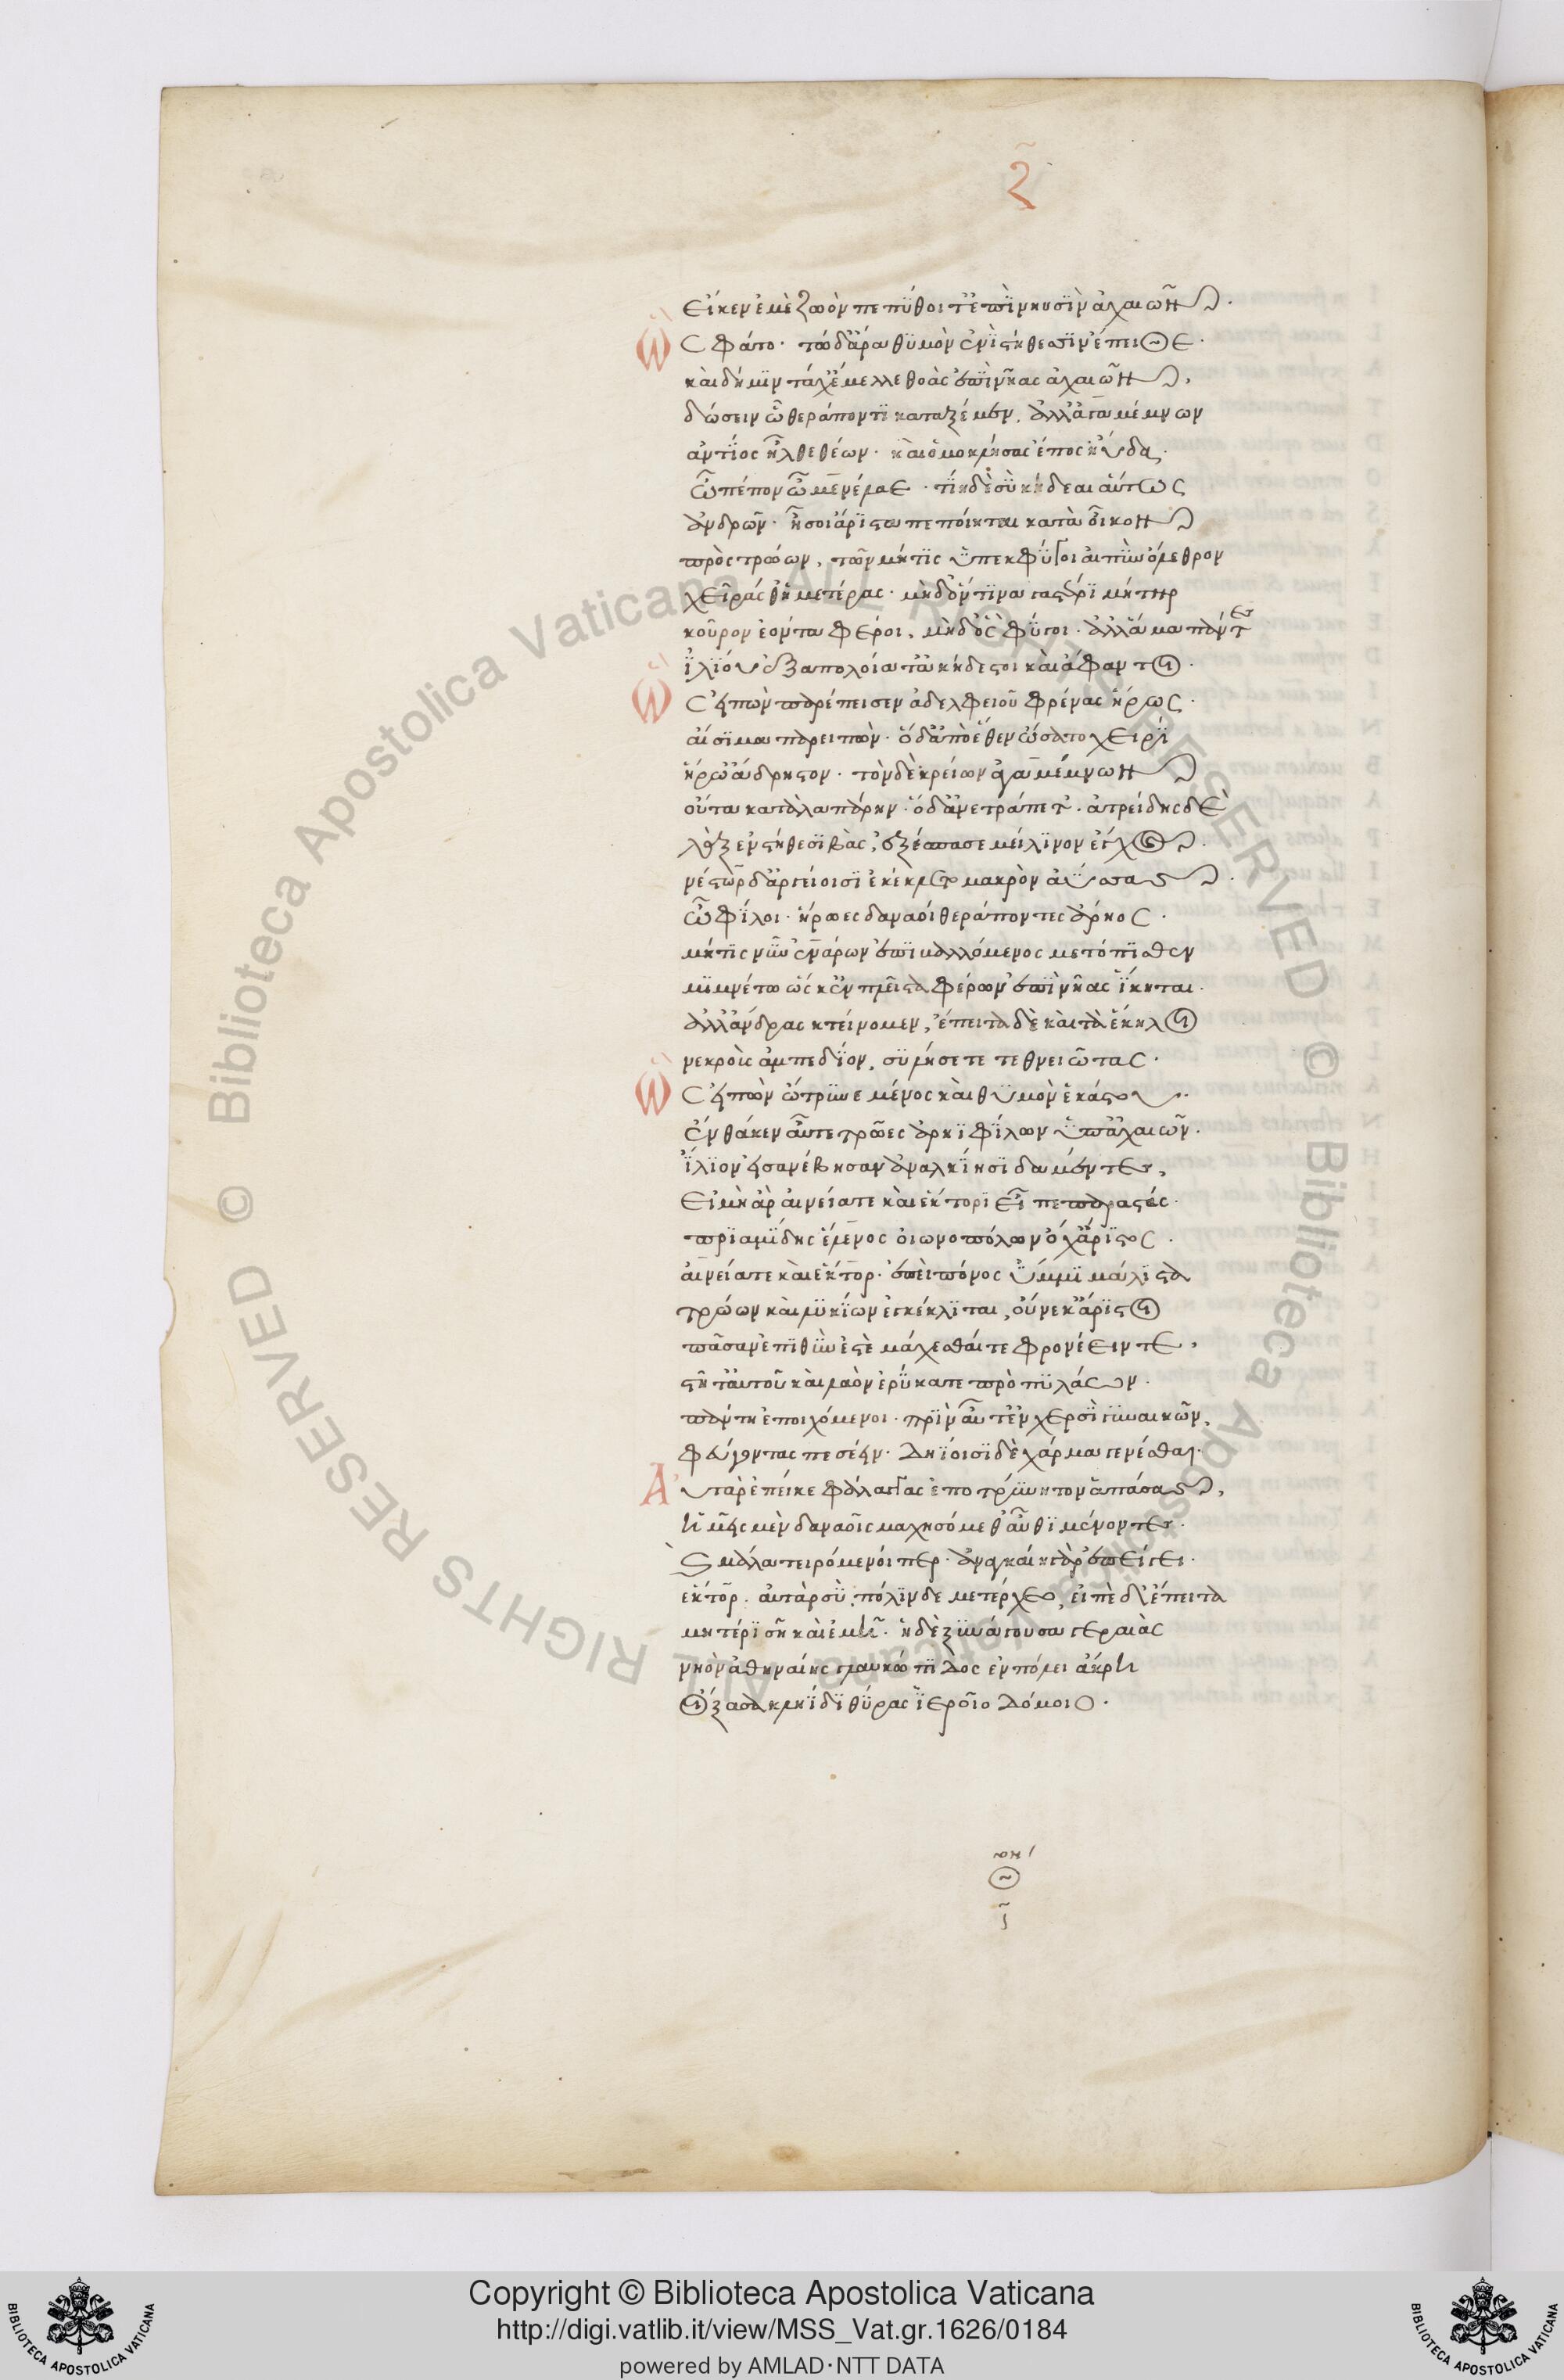 ζ
Εἴ κεν ἐμὲ ζωὸν πεπύθοιτ' ἐπὶ νηυσὶν ἀχαιῶν.
Ὣς φάτο· τῷ δ' ἄρα θυμὸν ἐνὶ στήθεσσιν ἔπειθε.
καὶ δή μιν τάχ' ἔμελλε θοὰς ἐπὶ νῆας ἀχαιῶν,
δώσειν ᾧ θεράποντι καταξέμεν. ἀλλ' ἀγαμέμνων
ἀντίος ἦλθε θέων· καὶ ὁμοκλήσας ἔπος ηὔδα.
ὦ πέπον ὦ μενέλαε· τίη δὲ σὺ κήδεαι αὕτως
ἀνδρῶν· ἦ σοι ἄριστα πεποίηται κατὰ οἶκον
πρὸς τρώων, τῶν μή τις ὑπεκφύγοι αἰπὺν ὄλεθρον
χεῖράς θ' ἡμετέρας· μηδ' ὅντινα γαστέρι μήτηρ
κοῦρον ἐόντα φέροι, μὴδ' ὃς φύγοι· ἀλλ' ἅμα πάντες
ἰλίου ἐξαπολοίατ' ἀκήδεστοι καὶ ἄφαντοι.
Ὣς εἰπὼν παρέπεισεν ἀδελφειοῦ φρένας ἥρως.
αἴσιμα παρειπών· ὁ δ' ἀπὸ ἕθεν ὤσατο χειρὶ
ἥρω' ἄδρηστον· τὸν δὲ κρείων ἀγαμέμνων
οὖτα κατὰ λαπάρην· ὁ δ' ἀνετράπετ'. ἀτρείδης δὲ
λὰξ ἐν στήθεσι βὰς, ἐξέσπασε μείλινον ἔγχος.
νέστωρ δ' ἀργείοισι ἐκέκλετο μακρὸν ἀΰσας.
ὦ φίλοι· ἥρωες δαναοὶ θεράποντες ἄρηος.
μή τις νῦν ἐνάρων ἐπιβαλλόμενος μετόπισθεν
μιμνέτω ὥς κεν πλεῖστα φέρων ἐπὶ νῆας ἵκηται.
ἀλλ' ἄνδρας κτείνομεν, ἔπειτα δὲ καὶ τὰ ἕκηλοι
νεκροὺς ἀμπεδίον, συλήσετε τεθνειῶτας.
Ὣς εἰπὼν ὤτρυνε μένος καὶ θυμὸν ἑκάστου.
ἔνθά κεν αὖτε τρῶες ἀρηϊφίλων ὑπ' ἀχαιῶν.
ἴλιον εἰσανέβησαν ἀναλκίησι δαμέντες,
εἰ μὴ ἄρ' αἰνείᾳ τε καὶ ἕκτορι εἶπε παραστάς.
πριαμίδης ἕλενος οἰωνοπόλων ὄχ' ἄριστος.
αἰνείᾳ τε καὶ ἕκτορ. ἐπεὶ πόνος ὔμμι μάλιστα
τρώων καὶ λυκίων ἐγκέκλιται, οὕνεκ' ἄριστοι
πᾶσαν ἐπιθύν ἐστὲ μάχεσθαί τε φρονέειν τε,
στῆτ' αὐτοῦ καὶ λαὸν ἐρύκατε πρὸ πυλάων.
πάντη ἐποιχόμενοι· πρὶν αὖτ' ἐν χερσὶ γυναικῶν,
φεύγοντας πεσέειν· δηΐοισι δὲ χάρμα γενέσθαι.
Αὐτὰρ ἐπεί κε φάλαγγας ἐποτρύνητον ἁπάσας,
ἡμεῖς μὲν δαναοῖς μαχησόμεθ' αὖθι μένοντες.
καὶ μάλα τειρόμενοί περ· ἀναγκαίη γὰρ ἐπείγει.
ἕκτορ. ἀτὰρ σὺ πόλινδε μετέρχεο, εἰπὲ δ' ἔπειτα
μητέρι σῇ καὶ ἐμῇ. ἡ δὲ ξυνάγουσα γεραιὰς
νηὸν ἀθηναίης γλαυκώπιδος ἐν πόλει ἄκρῃ
οἴξασα κληΐδι θύρας ἱεροῖο δόμοιο.
© Biblioteca Apostolica Vaticana ALL RIGHTS RESERVED © Biblioteca Apostolica Vaticana ALL RIGHTS RESERVED
BIBLIOTECA APOSTOLICA VATICANA
Copyright © Biblioteca Apostolica Vaticana
http://digi.vatlib.it/view/MSS_Vat.gr.1626/0184
powered by AMLAD·NTT DATA
BIBLIOTECA APOSTOLICA VATICANA